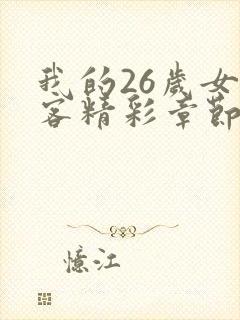 我的26歲女
客精彩章節
憶江